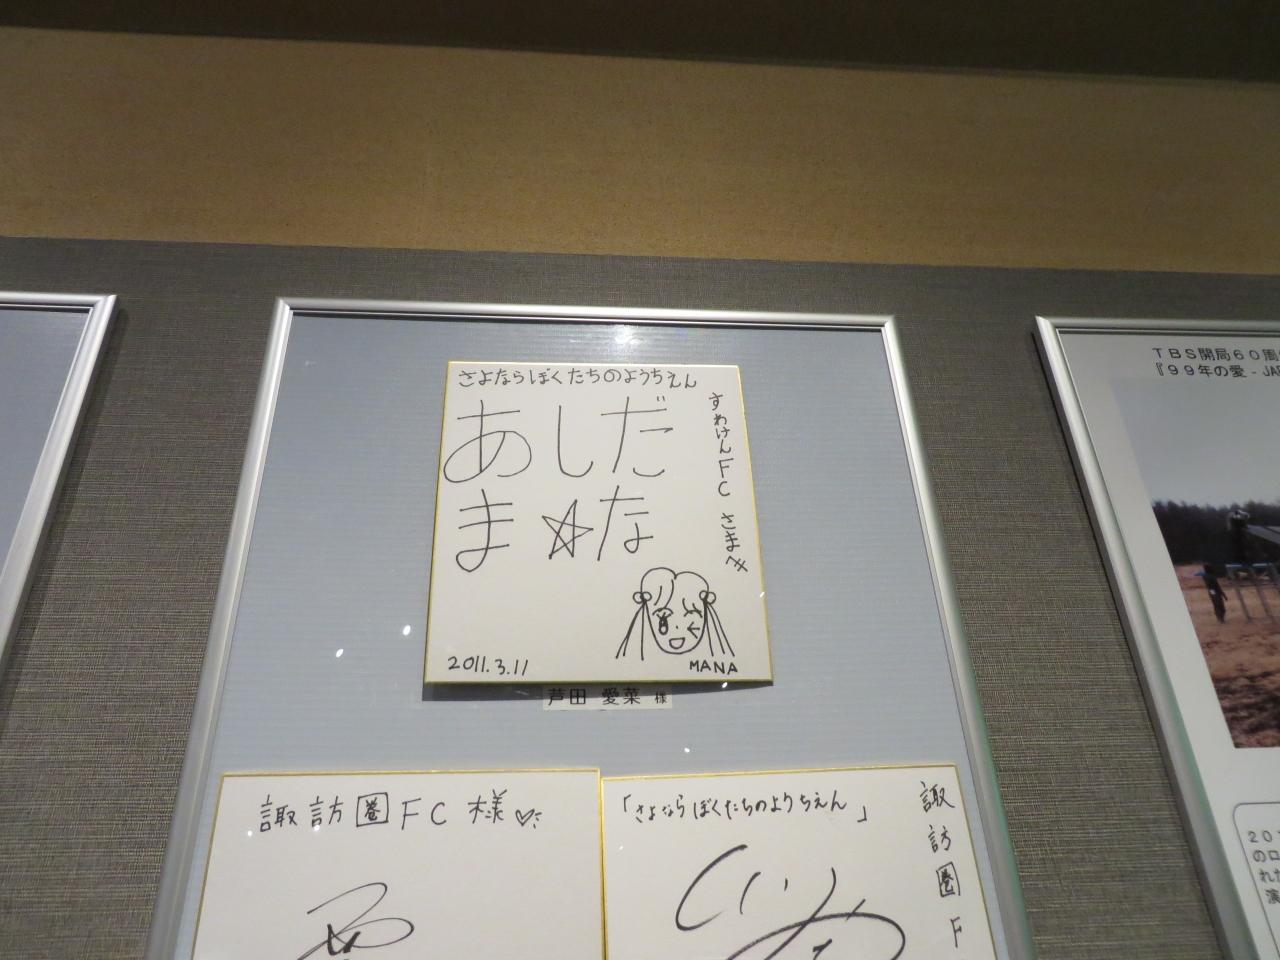 さよならぼくたちのようちえん
あしだ
ま☆な
すわけんFC さまへ
2011.3.11
MANA
芦田 愛菜 様
諏訪圏FC 様♡
「さよならぼくたちのようちえん」
諏訪圏F
TBS開局60周
『99年の愛 - JAP
201
のロ
れた
演